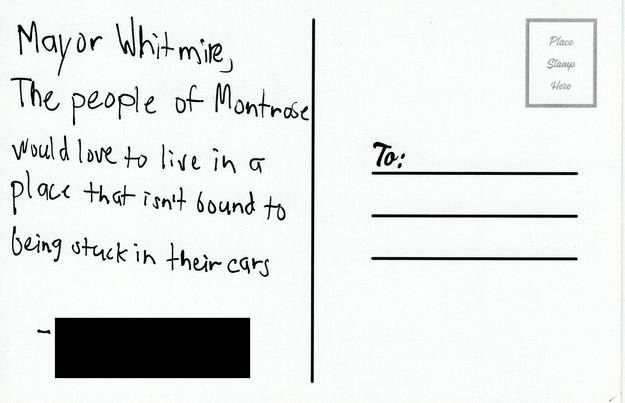 Mayor Whitmire,
The people of Montrose
would love to live in a
place that isn't bound to
being stuck in their cars
-
Place
Stamp
Here
To: